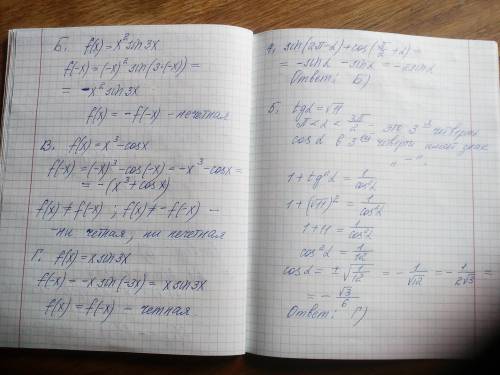 Б. f(x) = x² sin 3x
f(-x) = (-x)² sin(3·(-x)) =
= -x² sin 3x
f(x) = -f(-x) - нечетная
В. f(x) = x³ - cosx
f(-x) = (-x)³ - cos(-x) = -x³ - cosx =
= -(x³ + cosx)
f(x) ≠ f(-x) ; f(x) ≠ -f(-x) -
-ни четная, ни нечетная
Г. f(x) = x sin 3x
f(-x) = -x sin(-3x) = x sin 3x
f(x) = f(-x) - четная.
4. sin(2π-α) + cos(π/2 + α) =
= -sinα - sinα = -2sinα
Ответ: Б)
5. tgα = √11
π < α < 3π/2 - это 3ª четверть
cosα в 3ей четверти имеет знак
"-".
1 + tg²α = 1/cos²α
1 + (√11)² = 1/cos²α
1 + 11 = 1/cos²α
cos²α = 1/12
cosα = ± √(1/12) = - 1/√12 = - 1/2√3 =
= - √3/6
Ответ: Г)